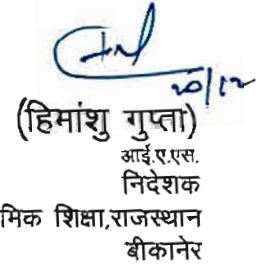 20/12
(हिमांशु गुप्ता)
आई.ए.एस.
निदेशक
मिक शिक्षा,राजस्थान
बीकानेर